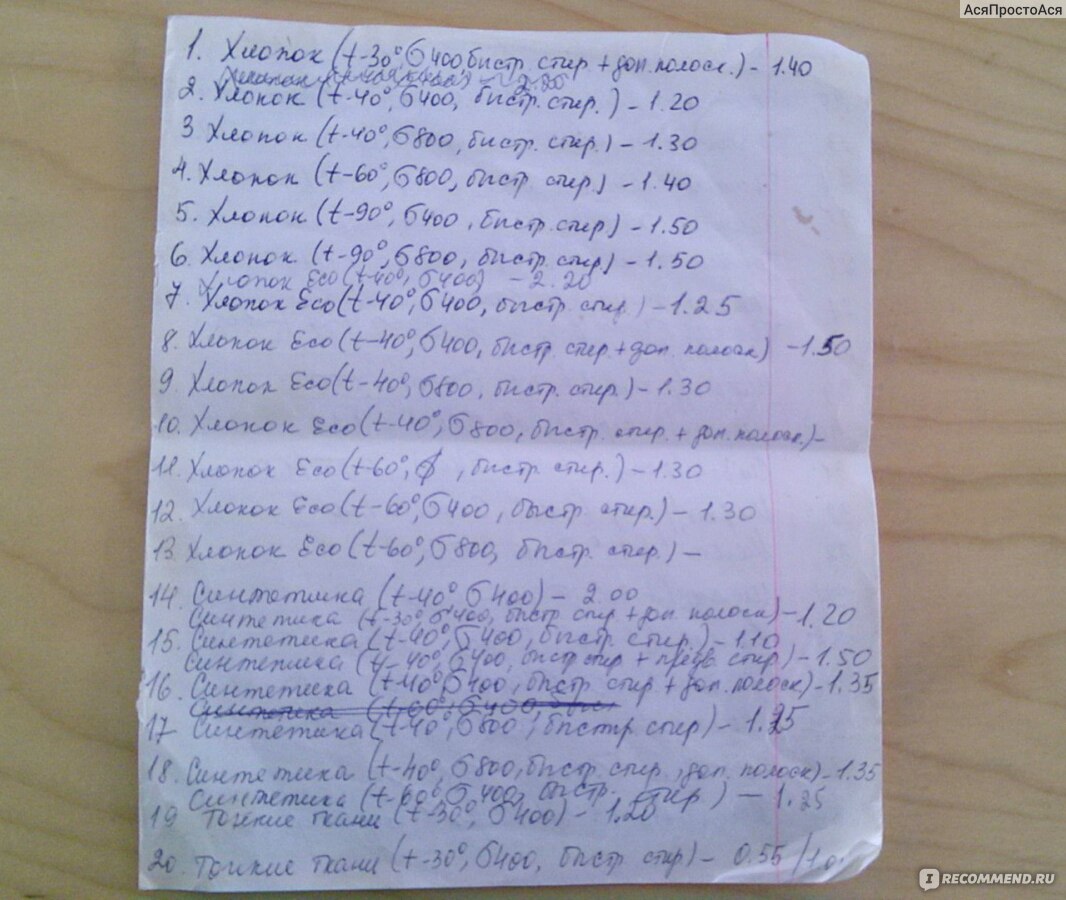 АсяПростоАся
1. Хлопок (t-30°, б400 быстр. стир + доп. полоск.) - 1.40
- 2.20
2. Хлопок (t-40°, б400, быстр. стир.) - 1.20
3 Хлопок (t-40°, б800, быстр. стир.) - 1.30
4. Хлопок (t-60°, б800, быстр стир) - 1.40
5. Хлопок (t-90°, б400, быстр. стир) - 1.50
6. Хлопок (t-90°, б800, быстр. стир) - 1.50
Хлопок Eco (t-40°, б400) - 2.20
7. Хлопок Eco (t-40°, б400, быстр. стир.) - 1.25
8. Хлопок Eco (t-40°, б400, быстр. стир + доп. полоск) - 1.50
9. Хлопок Eco (t-40°, б800, быстр. стир.) - 1.30
10. Хлопок Eco (t-40°, б800, быстр. стир. + доп. полоск.) -
11. Хлопок Eco (t-60°, ϭ, быстр. стир.) - 1.30
12. Хлопок Eco (t-60°, б400, быстр. стир.) - 1.30
13. Хлопок Eco (t-60°, б800, быстр. стир.) -
14. Синтетика (t-40°, б400) - 2.00
Синтетика (t-30°, б400, быстр стир + доп. полоск) - 1.20
15. Синтетика (t-40°, б400, быстр. стир.) - 1.10
Синтетика (t-40°, б400, быстр стир + предв. стир) - 1.50
16. Синтетика (t-40°, б400, быстр стир + доп. полоск) - 1.35
Синтетика (t-60°, б400
17 Синтетика (t-40°, б800, быстр стир) - 1.25
18. Синтетика (t-40°, б800, быстр. стир, доп. полоск) - 1.35
Синтетика (t-60°, б400, быстр. стир) - 1.25
19 Тонкие ткани (t-30°, б400) - 1.20
20. Тонкие ткани (t-30°, б400, быстр стир) - 0.55
IRECOMMEND.RU